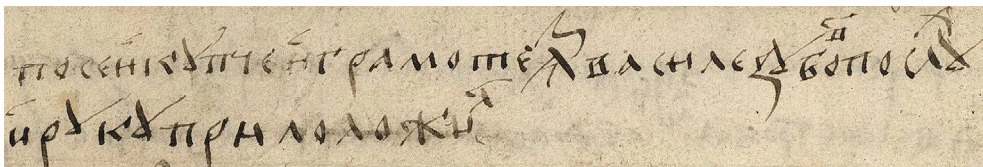 по сеи кꙋпчеи грамоте ꙗ василе послꙋⷯ
и рꙋкꙋ прилоложиⷧ